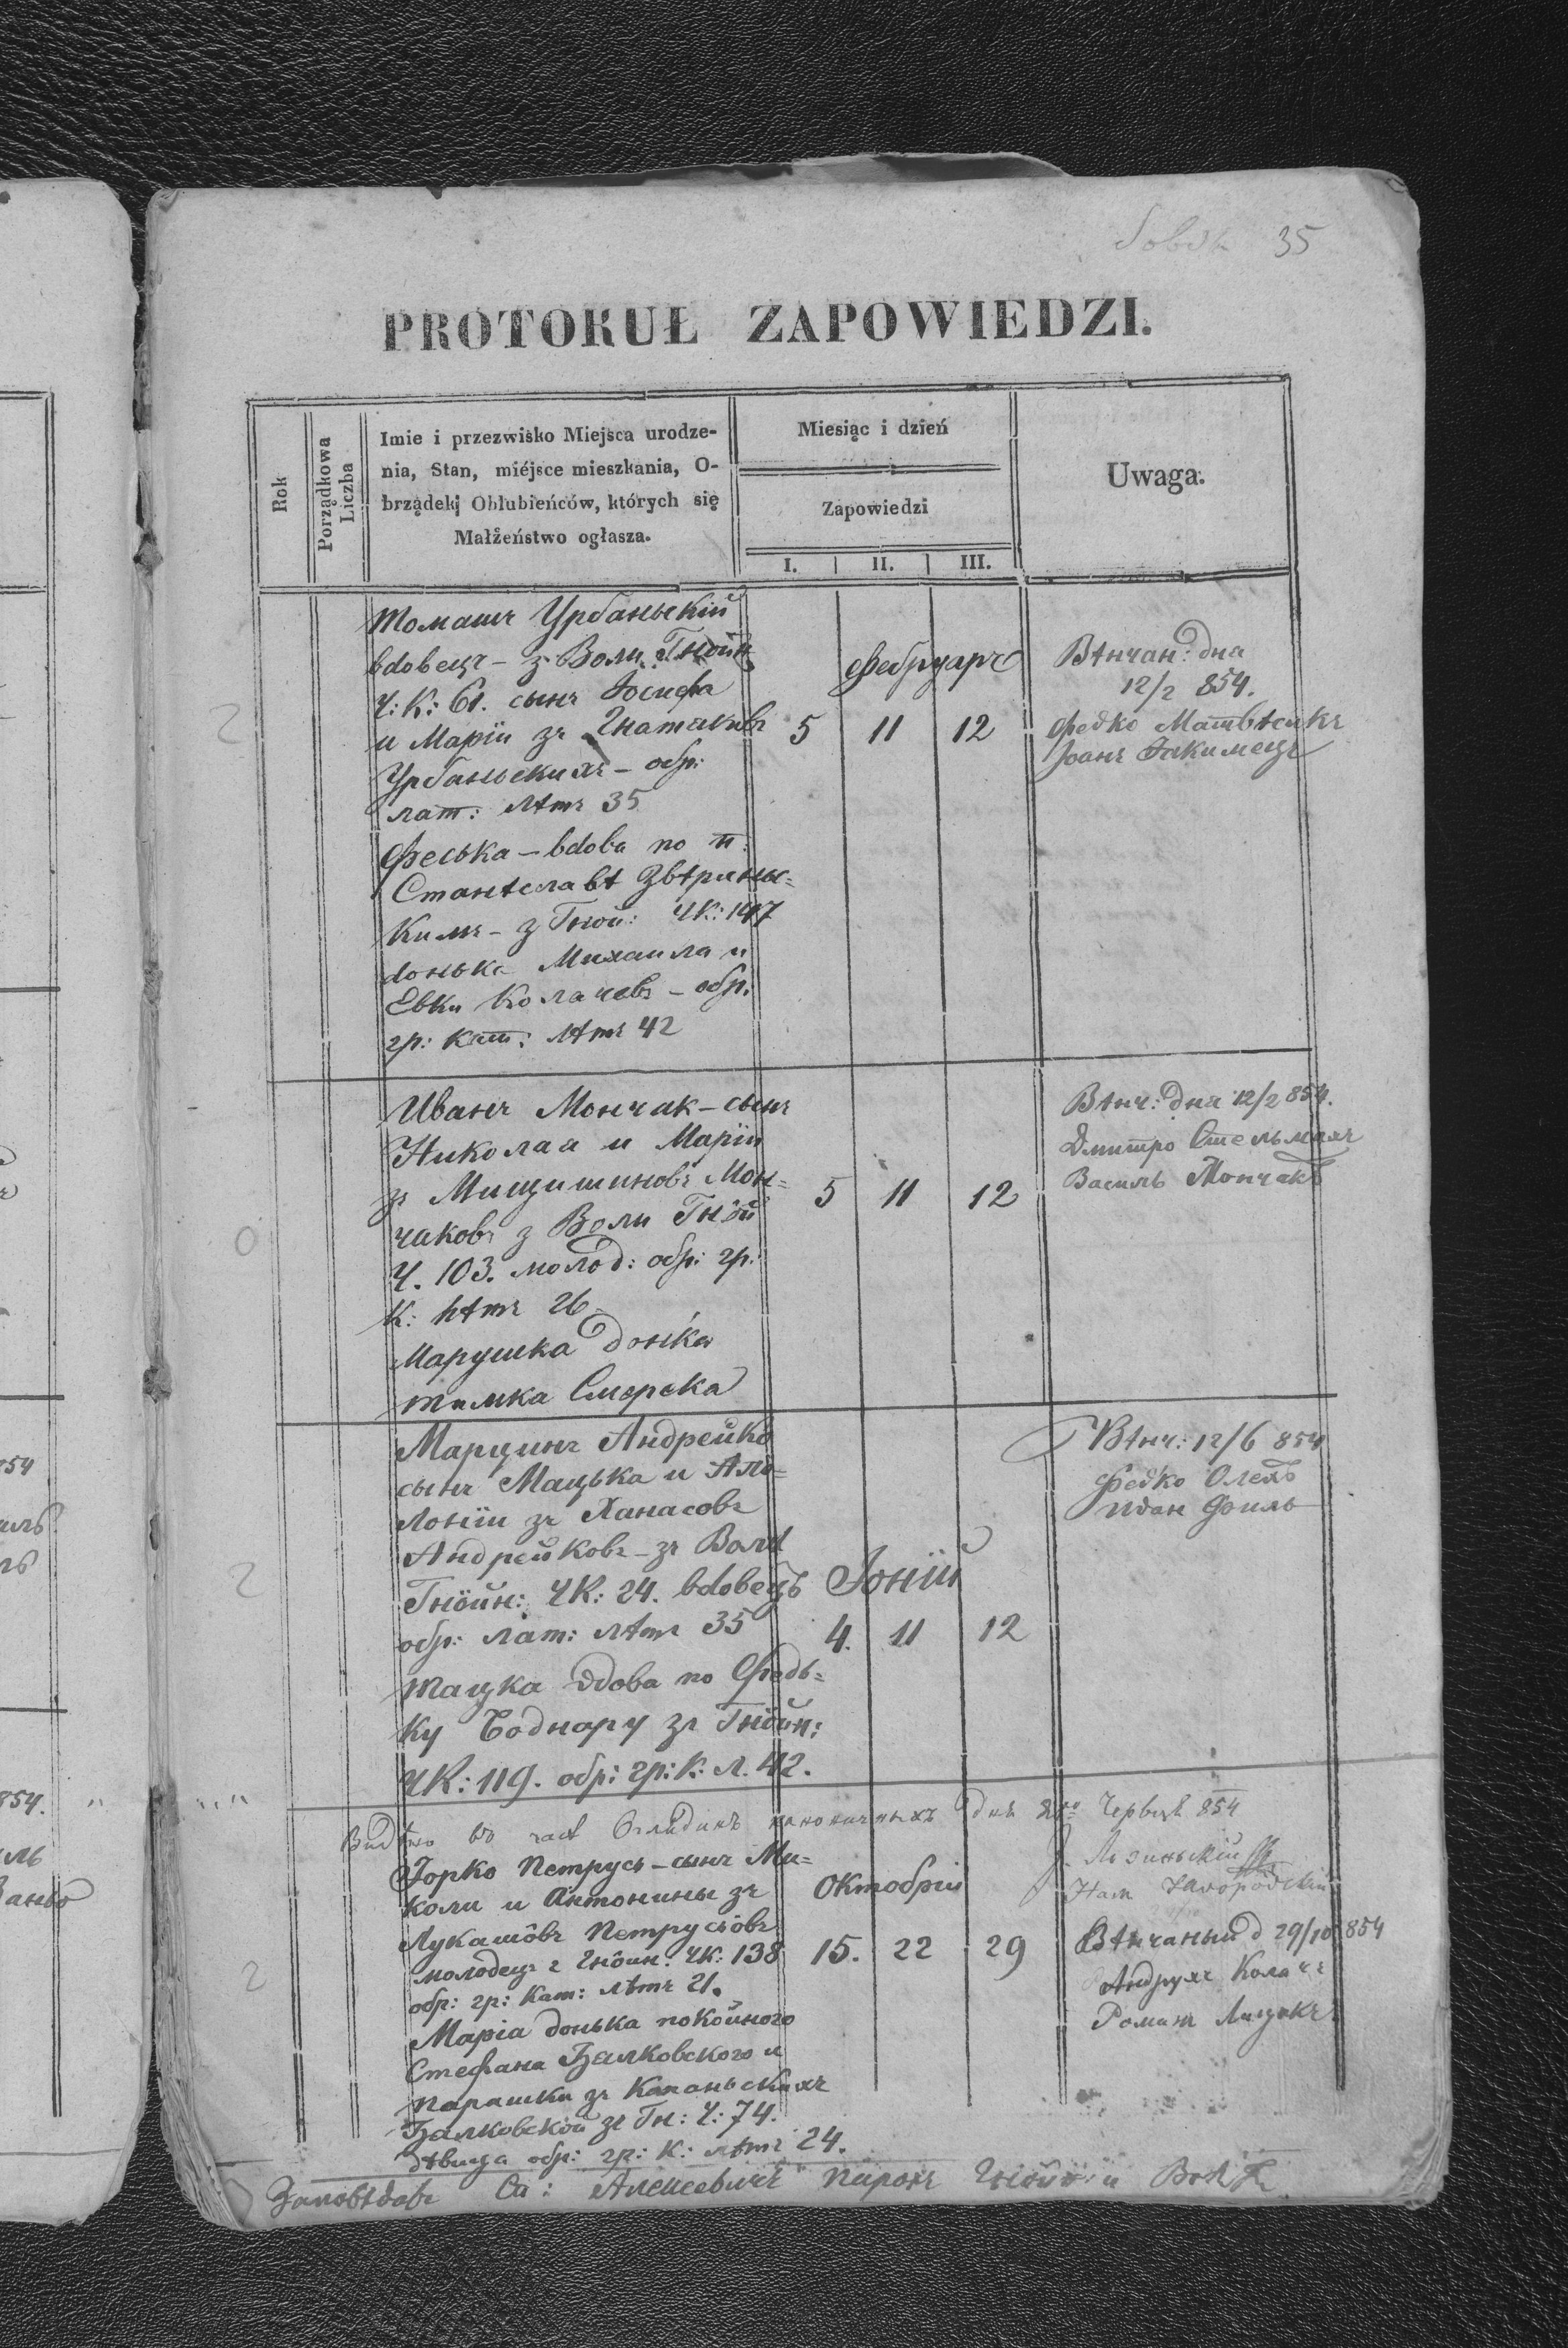 35
PROTOKUŁ ZAPOWIEDZI.
Rok
Porządkowa Liczba
Imie i przezwisko Miejsca urodze-
nia, Stan, miéjsce mieszkania, O-
brządek Oblubieńców, których się
Małżeństwo ogłasza.
Miesiąc i dzień
Zapowiedzi
I. II. III.
Uwaga.
Томашъ Урбаньскій
вдовецъ – з Воли Гнойн
Ч: К: 61. сынъ Іосифа
и Маріи зъ Игнатяківъ
Урбаньскихъ – обр:
лат: лѣтъ 35
Феська – вдова по п:
Станѣславѣ Звѣринь=
кимъ – з Гной: ЧК: 147
донька Михаила и
Евки Колачевъ – обр.
гр: кат: лѣтъ 42
Фебруаръ
5 11 12
Вѣнчан: дня
12/2 854.
Федко Матвѣсикъ
Іоанъ Якимецъ
2
Иванъ Мончак – сынъ
Николая и Маріи
зъ Мищишиновъ Мон=
чаковъ з Воли Гнôй
Ч. 103. молод: обр: гр:
К: лѣтъ 26
Марушка донька
тимка Смерека
5 11 12
Вѣнч: дня 12/2 854.
Дмитро Стельмахъ
Василь Мончакъ
0
Марцинъ Андрейко
сынъ Мацька и Апо=
лоніи зъ Панасовъ
Андрейковъ – зъ Волѣ
Гнôйн: ЧК: 24. вдовецъ
обр: лат: лѣтъ 35
Тацка вдова по Федь=
ку Боднару зъ Гнôйн:
ЧК: 119. обр: гр: К: л. 42.
Іюній
4. 11 12
Вѣнч: 12/6 854
Федко Олехъ
Иван Филь
2
Видѣно во часѣ Оглядинъ каноничныхъ дня Червця 854
Горко Петрусь – сынъ Ми=
коли и Антонины зъ
Лукашôвъ Петрусьôвъ
молодецъ з Гнôйн: ЧК: 138
обр: гр: Кат: лѣтъ 21.
Маріа донька покойного
Стефана Бялковского и
Парашки зъ Капаньскихъ
Бялковской зъ Гн: Ч: 74.
дѣвица обр: гр: К: лѣтъ 24.
Октобрій
15. 22 29
Вѣнчаный д 29/10 854
Андрухъ Колачъ
Романъ Лицакъ
2
Заповѣдавъ Ст: Алексевичъ Парохъ Гнôйн: и